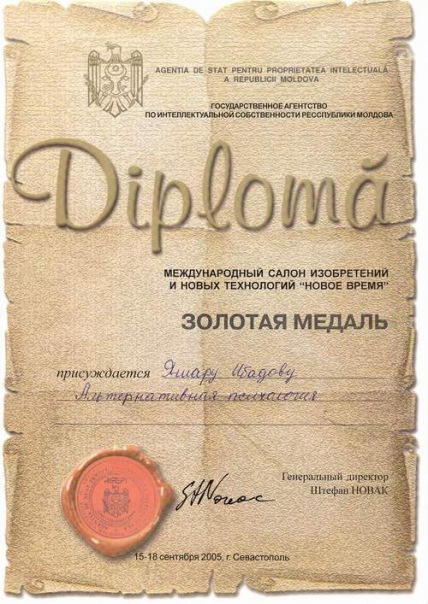 AGENŢIA DE STAT PENTRU PROPRIETATEA INTELECTUALĂ
A REPUBLICII MOLDOVA
ГОСУДАРСТВЕННОЕ АГЕНТСТВО
ПО ИНТЕЛЛЕКТУАЛЬНОЙ СОБСТВЕННОСТИ РЕССПУБЛИКИ МОЛДОВА
Diplomă
МЕЖДУНАРОДНЫЙ САЛОН ИЗОБРЕТЕНИЙ
И НОВЫХ ТЕХНОЛОГИЙ "НОВОЕ ВРЕМЯ"
ЗОЛОТАЯ МЕДАЛЬ
присуждается Яшару Ибадову
Альтернативная психология
Генеральный директор
Штефан НОВАК
15-18 сентября 2005, г. Севастополь